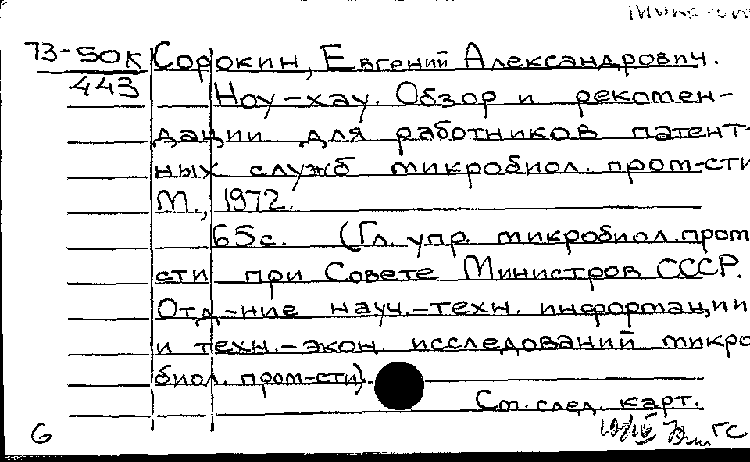 73-50К Сорокин, Евгений Александрович.
443
Ноу-хау. Обзор и рекомен-
дации для работников патент-
ных служб микробиол. пром-сти
М., 1972.
65с. (Гл. упр. микробиол. пром
сти при Совете Министров СССР.
Отд-ние науч.-техн. информации
и техн.-экон. исследований микро
биол. пром-сти).
См. след. карт.
G ГС